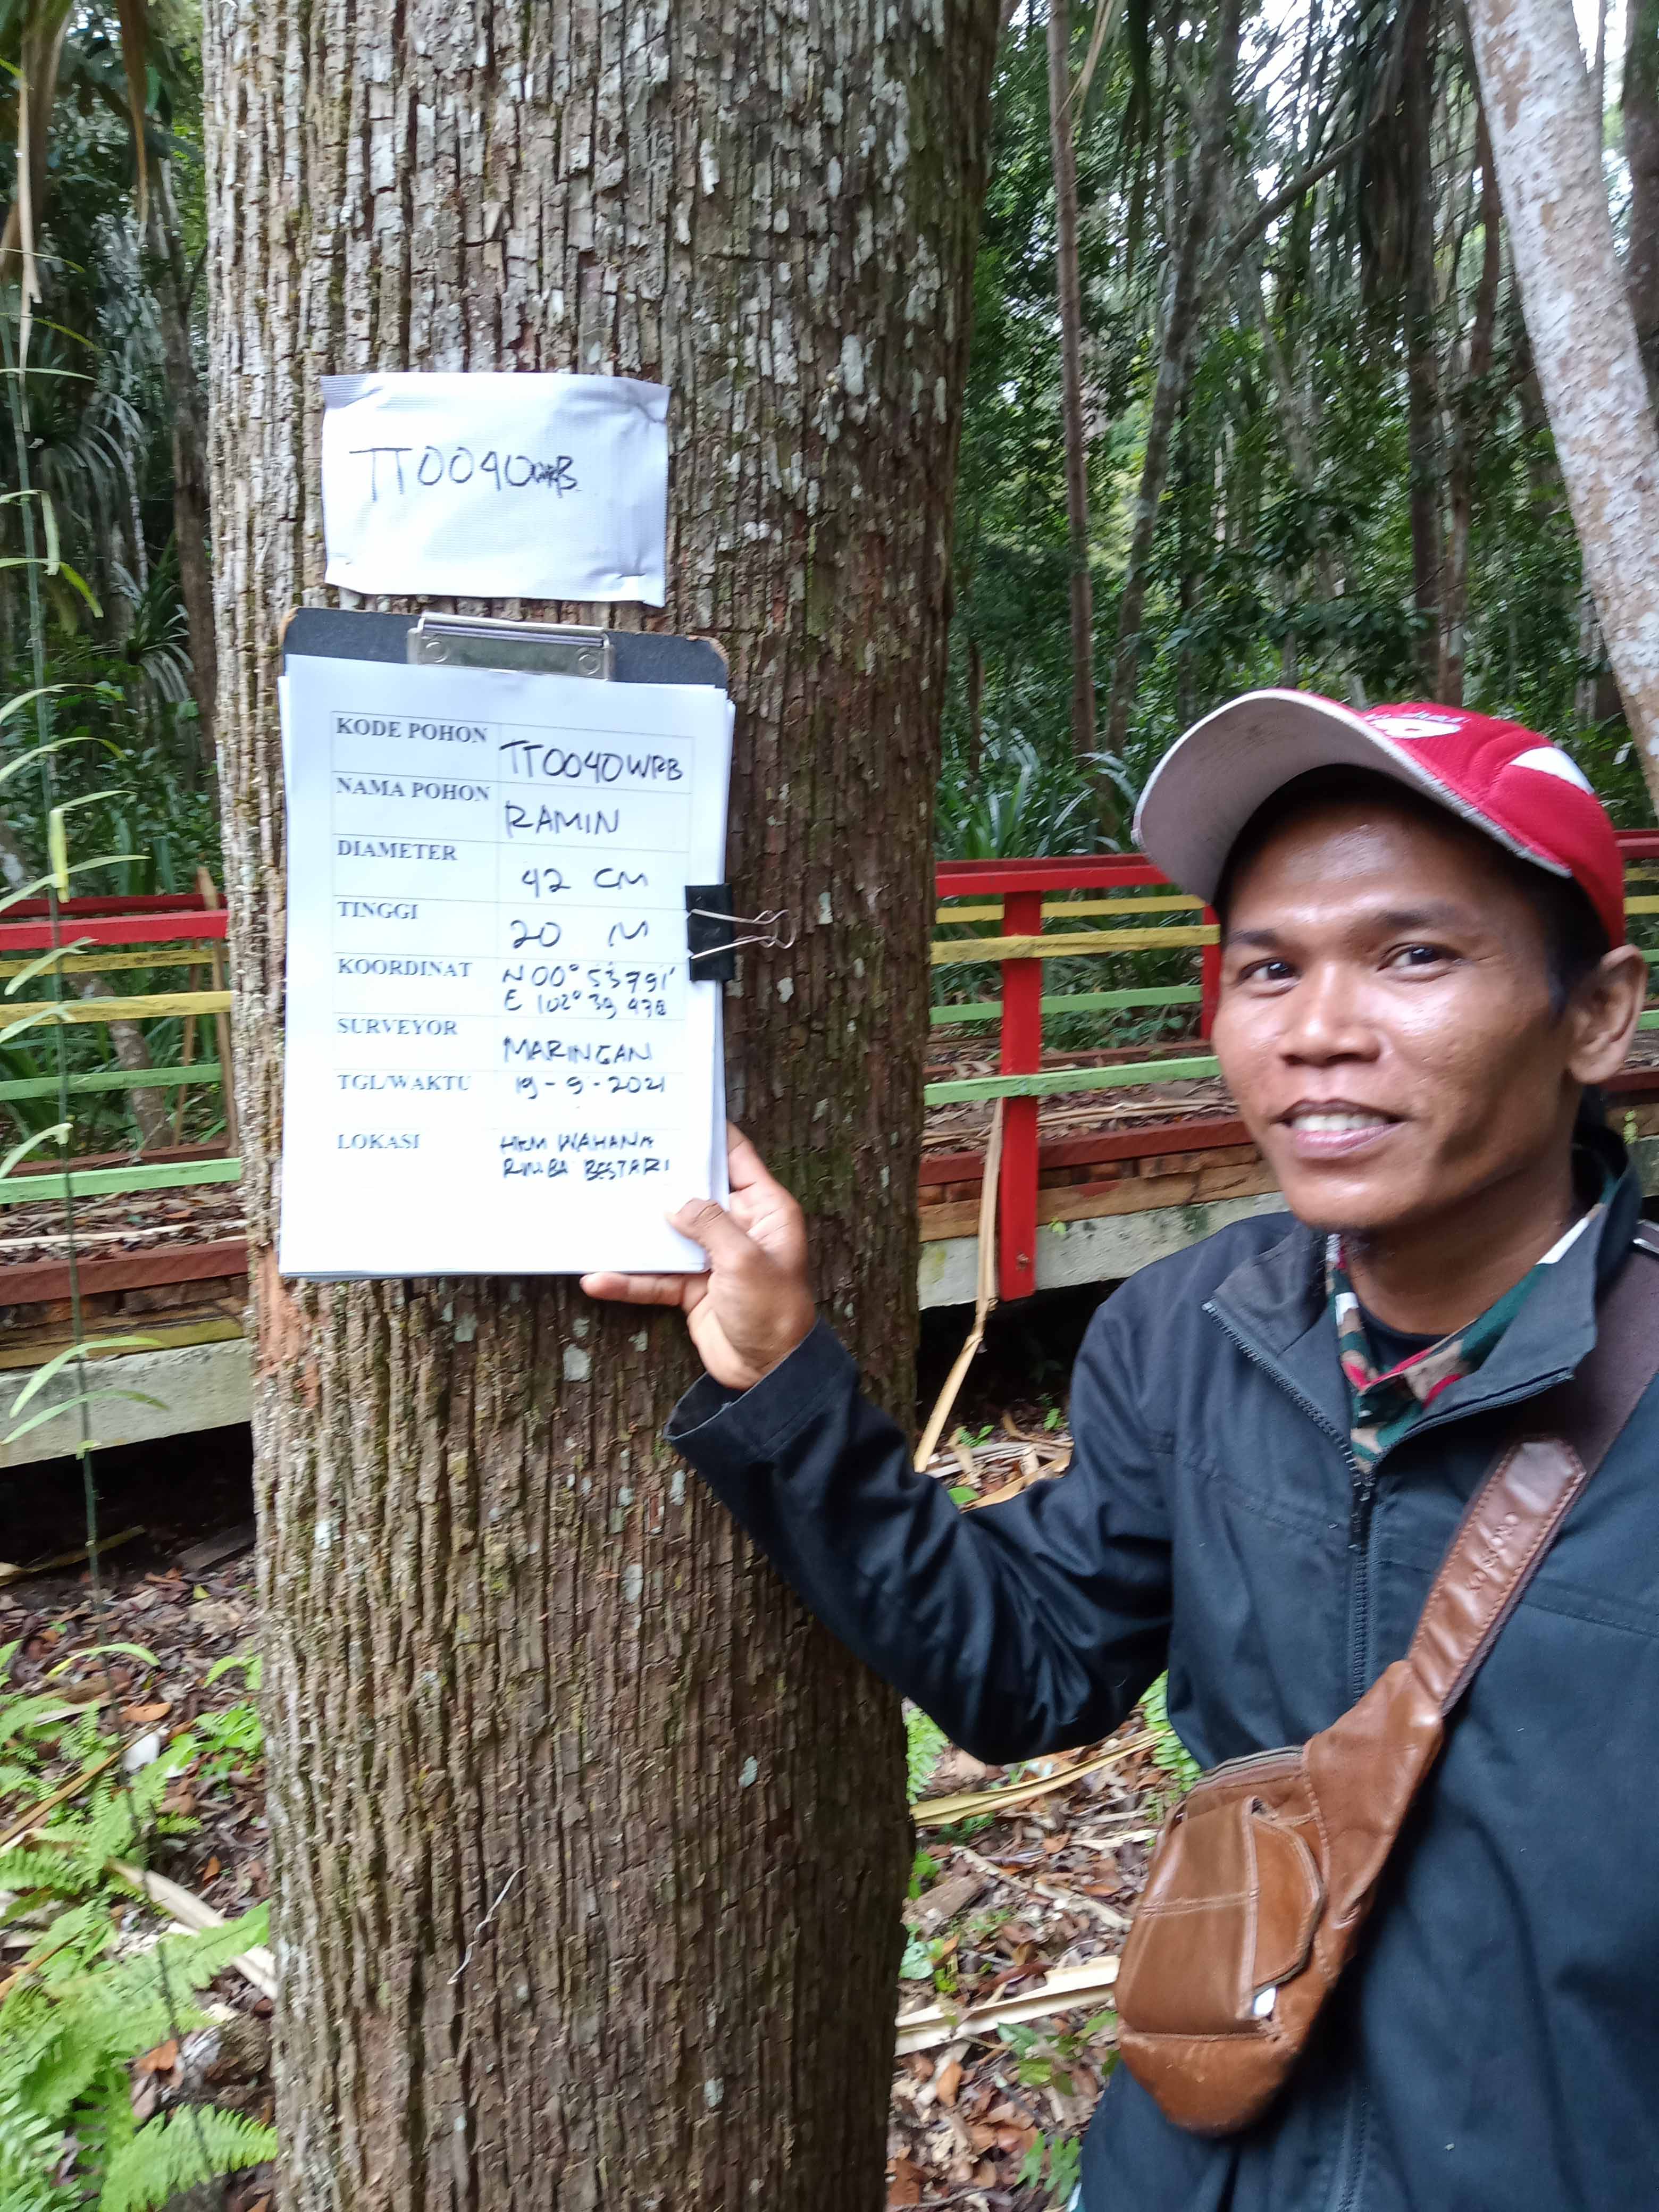 TT0040WRB
KODE POHON TT0040WRB
NAMA POHON RAMIN
DIAMETER 42 CM
TINGGI 20 M
KOORDINAT N 00° 53 791'
E 102° 39 438
SURVEYOR MARINGAN
TGL/WAKTU 19-9-2021
LOKASI HKM WAHANA
RIMBA BESTARI